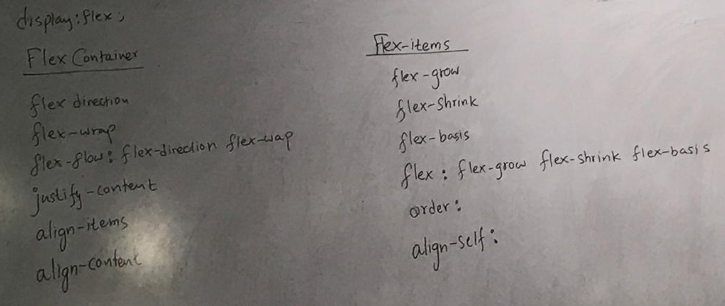 display:flex;
Flex Container
flex direction
flex-wrap
flex-flow: flex-direction flex-wap
justify-content
align-items
align-content
Flex-items
flex-grow
flex-shrink
flex-basis
flex: flex-grow flex-shrink flex-basis
order:
align-self: